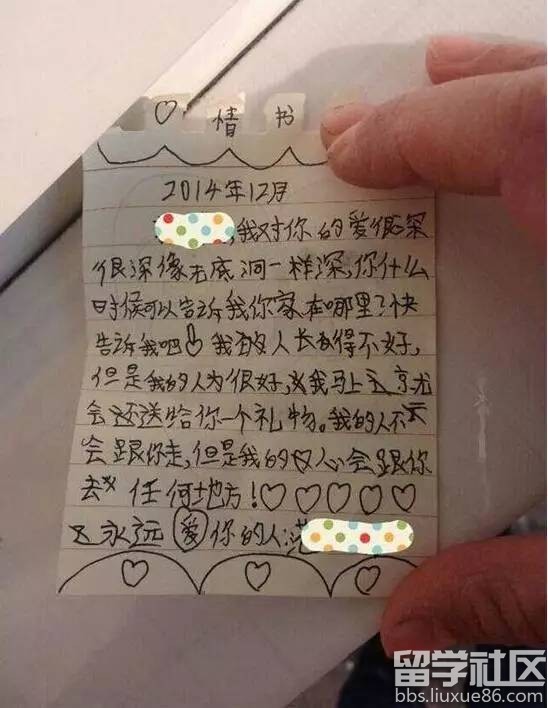 ♡ 情书
2014年12月
,我对你的爱很深
很深像无底洞一样深,你什么
时候可以告诉我你家在哪里?快
告诉我吧 我的人长得不好,
但是我的人为很好,我马上
会还送给你一个礼物。我的人不
会跟你走,但是我的心会跟你
去任何地方!♡♡♡♡♡
永远爱你的人:范
留学社区
bbs.liuxue86.com